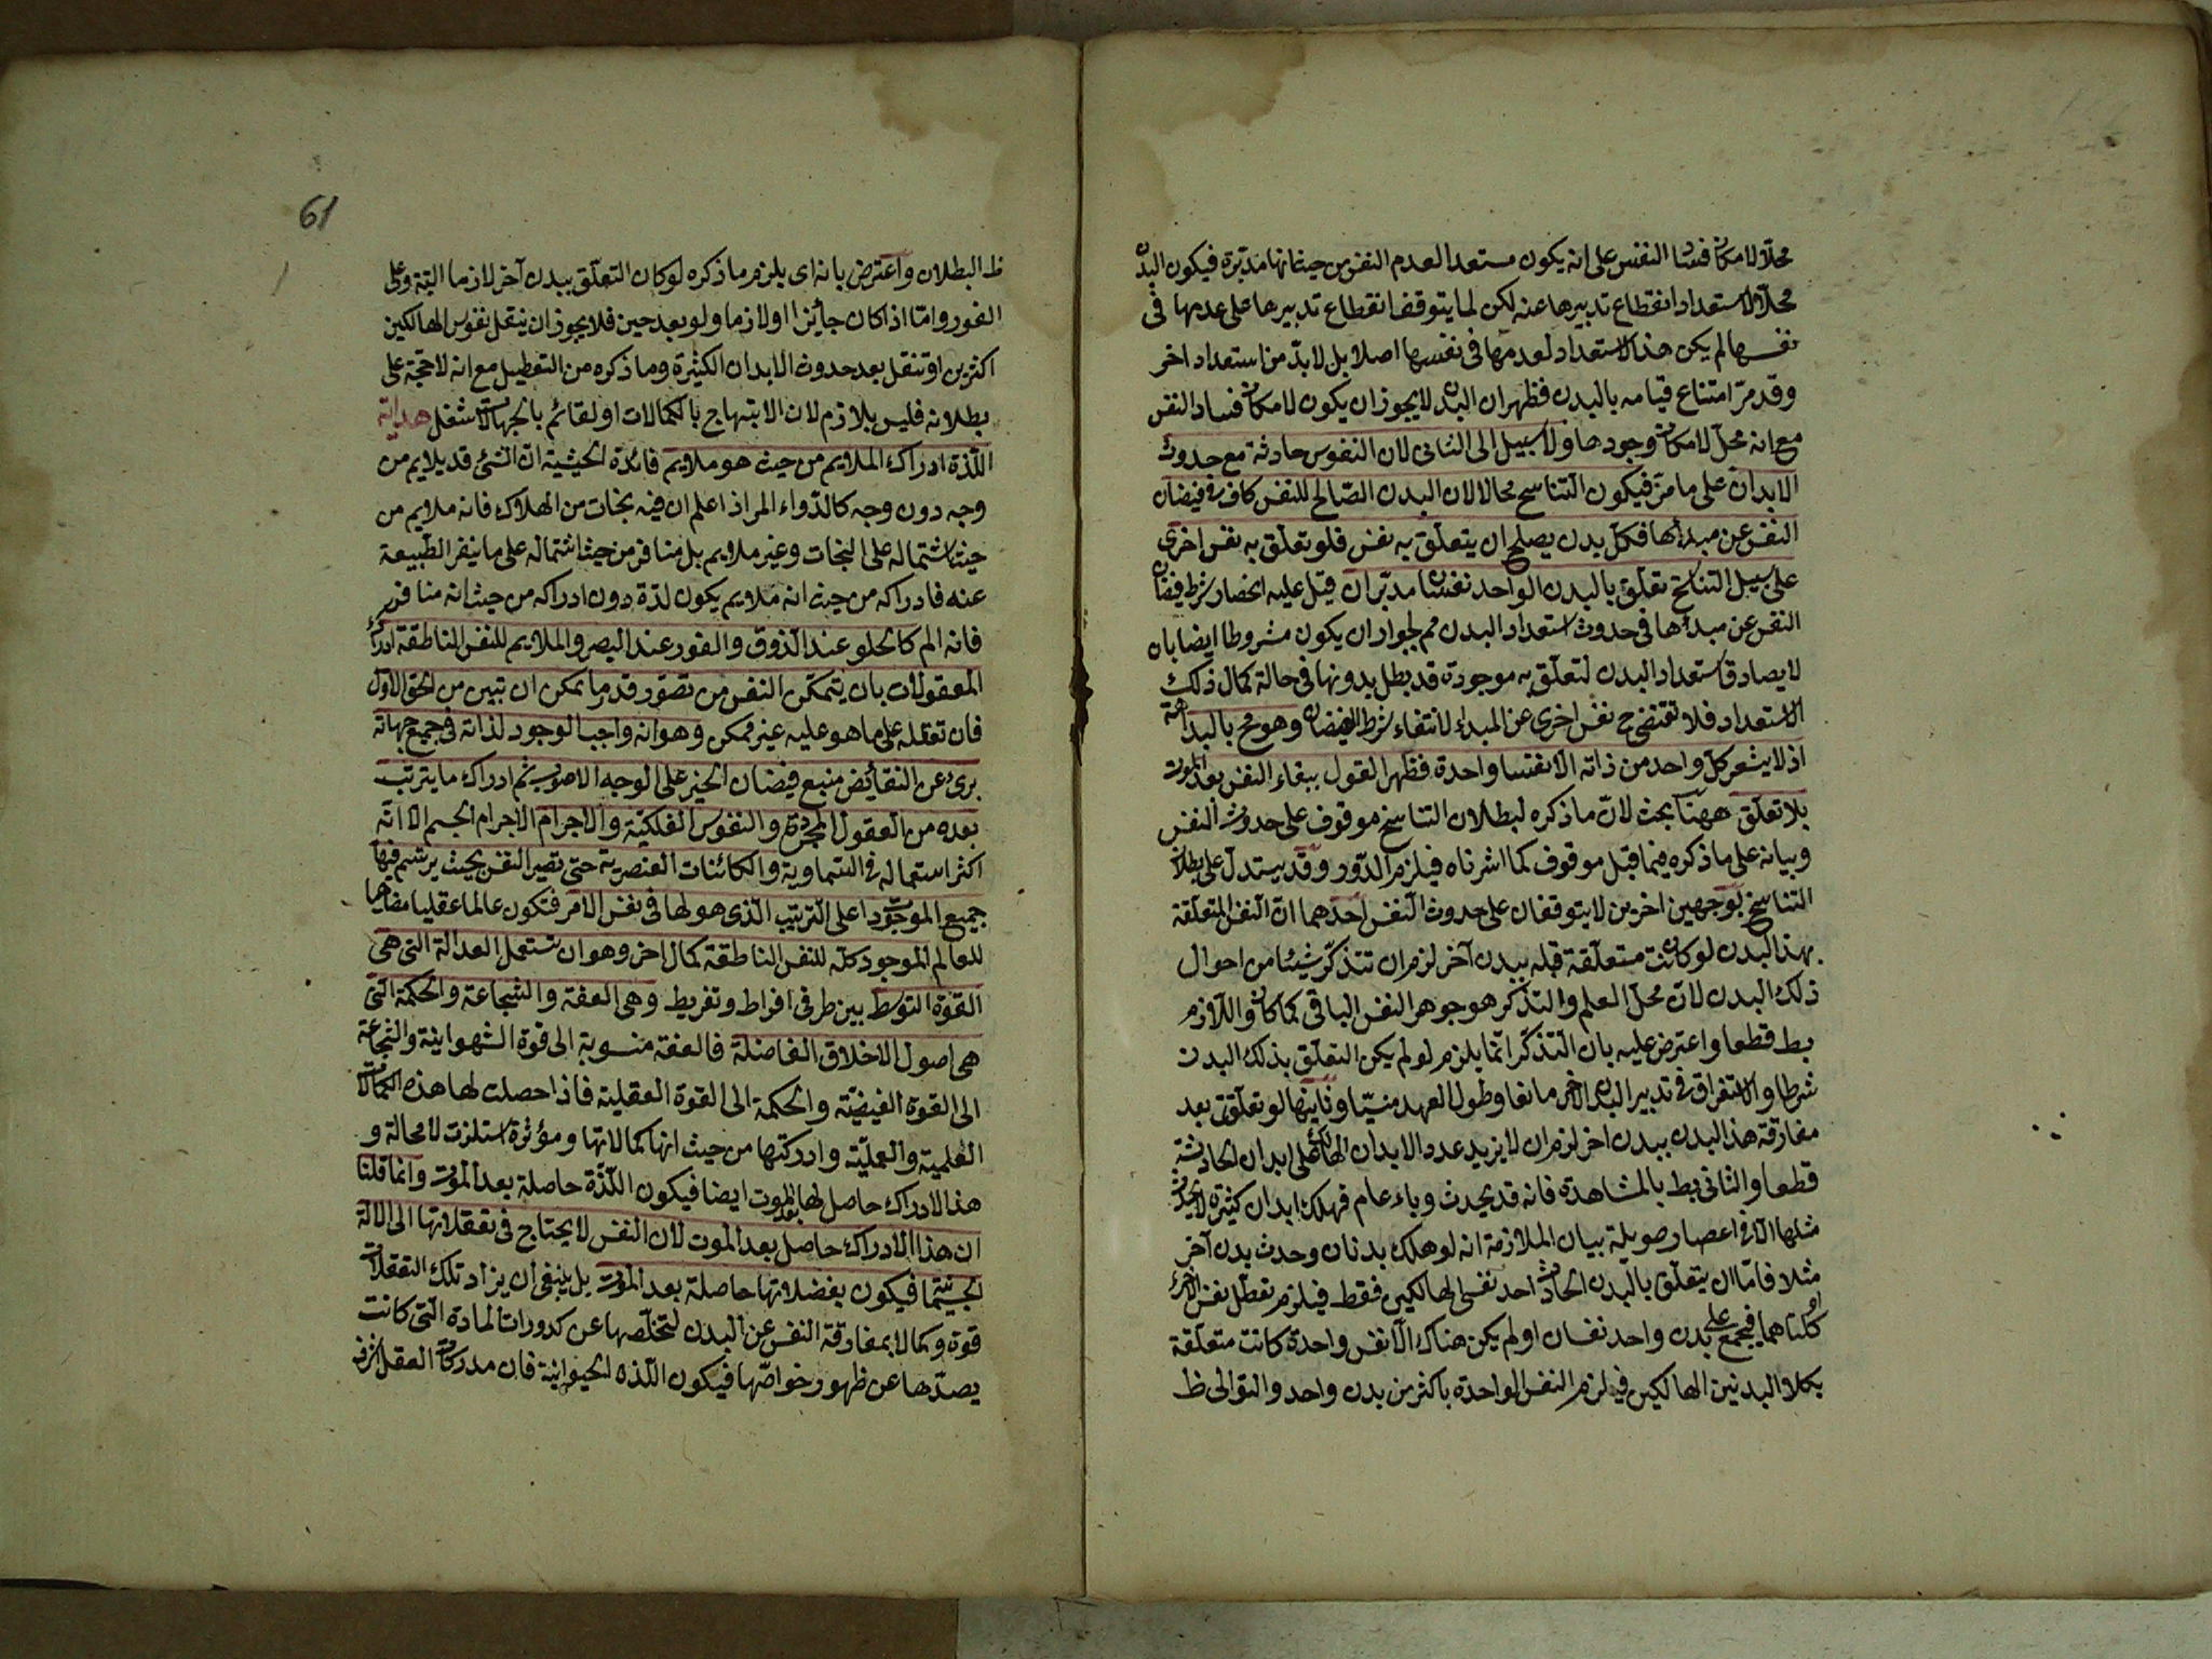 محلا لامكان فساد النفس على انه يكون مستعدا لعدم النفس من حيث انها مدبرة فيكون البدن
محلا لاستعداد انقطاع تدبيرها عنه لكن لما يتوقف انقطاع تدبيرها على عدمها فى
نفسها لم يكن هذا الاستعداد لعدمها فى نفسها اصلا بل لابد من استعداد اخر
وقد مر امتناع قيامه بالبدن فظهر ان البدن لا يجوز ان يكون لامكان فساد النفس
مع انه محل لامكان وجودها ولا سبيل الى الثانى لان النفوس حادثة مع حدوث
الابدان على ما مر فيكون التناسخ محالا لان البدن الصالح للنفس كاف فى فيضان
النفس عن مبدائها فكل بدن يصلح ان يتعلق به نفس فلو تعلق به نفس اخرى
على سبيل التناسخ تعلق بالبدن الواحد نفسان مدبران قيل عليه انحصار شرط فيضان
النفس عن مبدأها فى حدوث استعداد البدن مم لجواز ان يكون مشروطا ايضا بان
لا يصادف استعداد البدن لتعلق به موجودة قد بطل بدونها فى حالة كمال ذلك
الاستعداد فلا تقتضى ح نفس اخرى عن المبداء لانتفاء شرط الفيضان وهو مح بالبداهة
اذ لا يشعر كل واحد من ذاته الا نفسا واحدة فظهر القول ببقاء النفس بعد الموت
بلا تعلق ههنا بحث لان ما ذكره لبطلان التناسخ موقوف على حدوث النفس
وبيانه على ما ذكره فيما قبل موقوف كما اشرناه فيلزم الدور وقد يستدل على بطلان
التناسخ بوجهين اخرين لا يتوقفان على حدوث النفس احدهما ان النفس المتعلقة
بهذا البدن لو كانت متعلقة قبله ببدن آخر لزم ان تتذكر شيئا من احوال
ذلك البدن لان محل العلم والتذكر هو جوهر النفس الباقى كما كان واللازم
بط قطعا واعترض عليه بان التذكر انما يلزم لو لم يكن التعلق بذلك البدن
شرطا والاستغراق فى تدبير البدن الاخر مانعا وطول العهد منسيا وثانيهما لو تعلقت بعد
مفارقة هذا البدن ببدن اخر لزم ان لا يزيد عدد الابدان الهالكة على ابدان الحادثة
قطعا والثانى بط بالمشاهدة فانه قد يحدث وباء عام فهلك ابدان كثيرة لا يحدث
مثلها الا فى اعصار صويلة بيان الملازمة انه لو هلك بدنان وحدث بدن آخر
مثلا فاما ان يتعلق بالبدن الحادث احد نفسى الهالكين فقط فيلزم تعطل نفس الاخر
او كلتاهما فيجمع على بدن واحد نفسان او لم يكن هناك الا نفس واحدة كانت متعلقة
بكلا البدنين الهالكين فيلزم النفس الواحدة باكثر من بدن واحد والتوالى ظ
61
ظ البطلان واعترض بانه اى يلزم ما ذكره لو كان التعلق ببدن آخر لازما البتة وعلى
الفور واما اذا كان جائزا او لازما ولو بعد حين فلا يجوز ان ينتقل نفوس الهالكين
اكثرين او تنقل بعد حدوث الابدان الكثيرة وما ذكره من التعطيل مع انه لا حجة على
بطلانه فليس بلازم لان الابتهاج بالكمالات او لقائم بالجهالات شغل هداية
اللذة ادراك الملايم من حيث هو ملايم فائدة الحيثية ان الشئ قد يلايم من
وجه دون وجه كالدواء المر اذا علم ان فيه نجات من الهلاك فانه ملايم من
حيث اشتماله على النجات وغير ملايم بل منافر من حيث اشتماله على ما ينفر الطبيعة
عنه فادراكه من حيث انه ملايم يكون لذة دون ادراكه من حيث انه منافر
فانه الم كالحلو عند الذوق والنور عند البصر والملايم للنفس الناطقة ادراك
المعقولات بان يتمكن النفس من تصور قدر ما يمكن ان تبين من الحق الاول
فان تعقله على ما هو عليه غير ممكن وهو انه واجب الوجود لذاته فى جميع جهاته
برئ عن النقائض منبع فيضان الخير على الوجه الاصوب ثم ادراك ما يترتب
بعده من العقول المجردة والنفوس الفلكية والاجرام الاجرام الجسم الا انه
اكثر استعماله فى السماوية والكائنات العنصرية حتى تصير النفس بحيث يرتسم فيها
جميع الموجودات على الترتيب الذى هو لها فى نفس الامر فتكون عالما عقليا مضاهيا
للعالم الموجود كله للنفس الناطقة كمال اخر وهو ان تستعمل العدالة التى هى
القوة التوسط بين طرفى افراط وتفريط وهى العفة والشجاعة والحكمة التى
هى اصول الاخلاق الفاضلة فالعفة منسوبة الى قوة الشهوانية والشجاعة
الى القوة الغيضية والحكمة الى القوة العقلية فاذا حصلت لها هذه الكمالات
العلمية والعملية وادركتها من حيث انها كمالاتها ومؤثرة استلزت لا محالة و
هذا الادراك حاصل لها بعد الموت ايضا فيكون اللذة حاصلة بعد الموت وانما قلنا
ان هذا الادراك حاصل بعد الموت لان النفس لا يحتاج فى تعقلاتها الى الالة
الجسمية فيكون بفضلاتها حاصلة بعد الموت بل ينبغى ان يزاد تلك التعقلات
قوة وكمالا بمفارقة النفس عن البدن لتخلصها عن كدورات المادة التى كانت
يصدها عن ظهور خواصها فيكون اللذه الحيوانية فان مدركات العقل اشرف